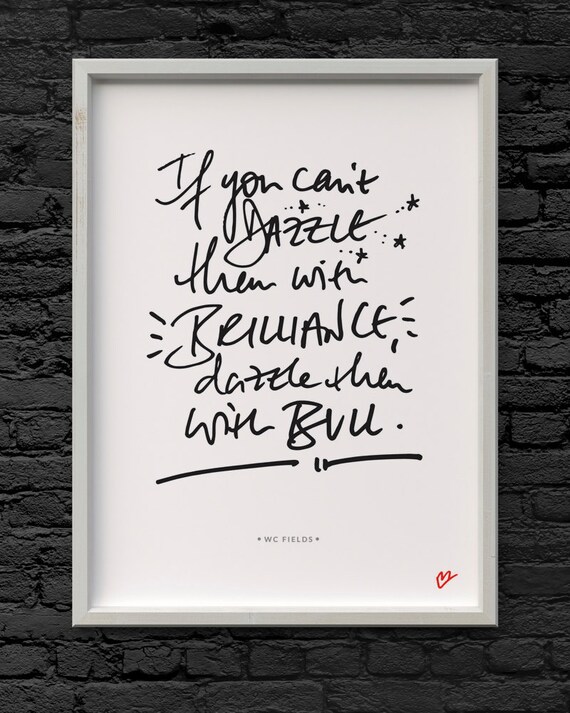 If you can't
DAZZLE
them with
BRILLIANCE,
dazzle them
with BULL.
* WC FIELDS *